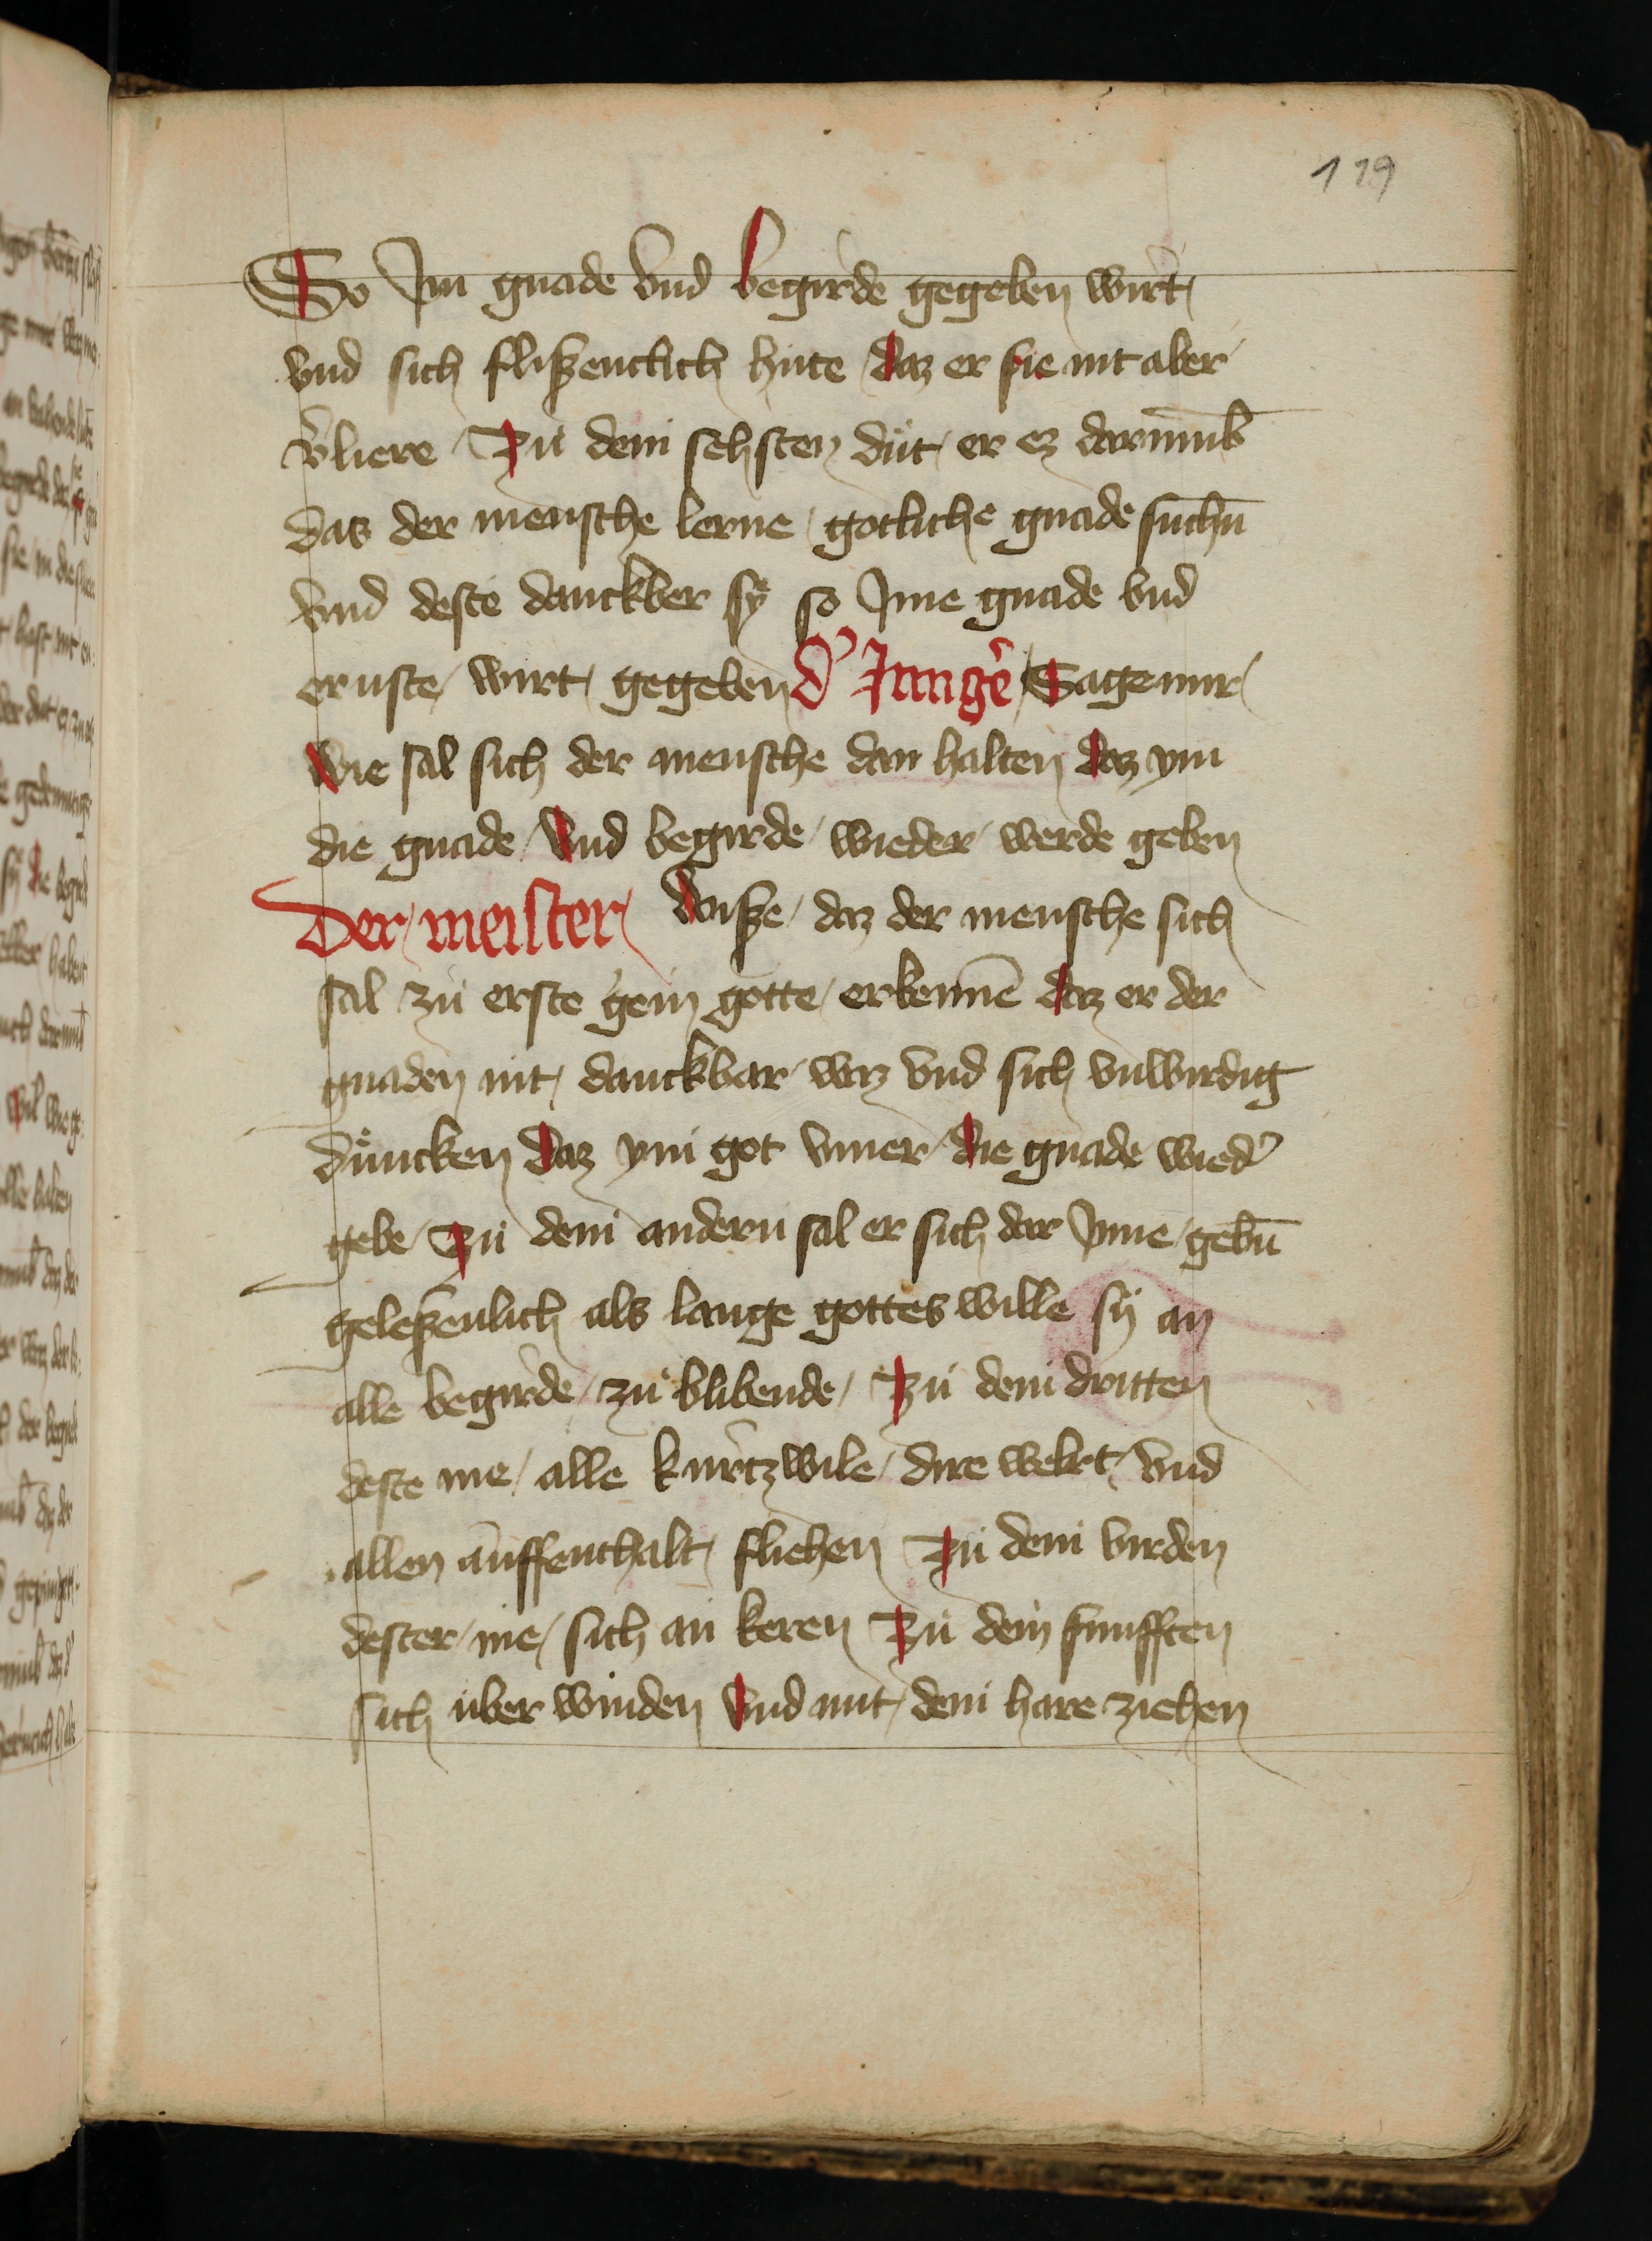 119
So Im gnade vnd begirde gegeben wirt
vnd sich flißenclich hute daz er sie nit aber
v̓liere Zu dem sehsten dut er ez darumb
das der mensche lerne gotliche gnade suchn̄
vnd deste danckber sy so Ime gnade vnd
ernste wirt gegeben d' Junge' Sage mir
wie sal sich der mensche dan halten daz ym
die gnade vnd begirde wieder werde geben
Der meister wiße daz der mensche sich
sal zu erste gein gotte erkennē daz er der
gnaden nit danckbar waz vnd sich vnwirdig
duncken daz ym got vmer die gnade wied'
gebe Zu dem andern sal er sich dar Jnne gebn̄
geleßenlich als lange gottes wille sy an
alle begirde zu blibende Zu dem dritten
deste me alle kurtzwile dire welt vnd
allen auffenthalt fliehen Zu dem virden
dester me sich an keren Zu dem funfften
sich uber winden vnd mit dem hare ziehen